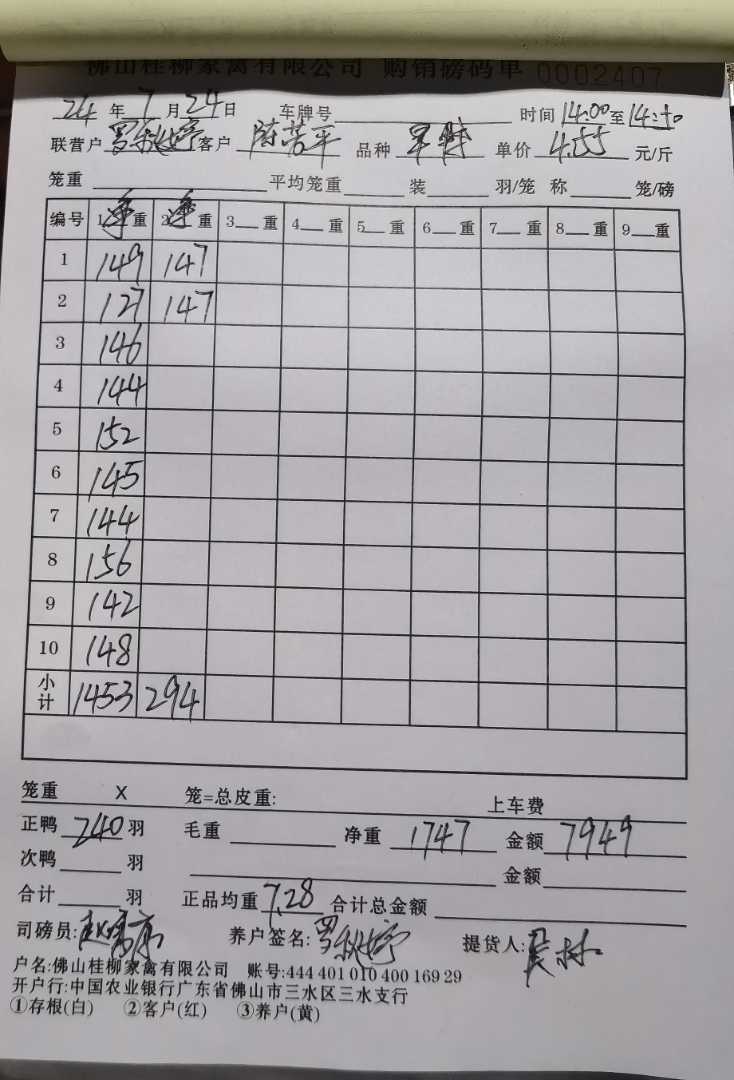 佛山桂柳家禽有限公司 购销磅码单 0002407
24 年 7 月 24 日 车牌号 时间 14:00 至 14:50
联营户 罗秋婷 客户 陈芳平 品种 单价 4.55 元/斤
笼重 平均笼重 装 羽/笼 称 笼/磅
编号 1净重 2净重 3 重 4 重 5 重 6 重 7 重 8 重 9 重
1 149 147
2 127 147
3 146
4 144
5 152
6 145
7 144
8 156
9 142
10 148
小计 1453 294
笼重 X 笼=总皮重: 上车费
正鸭 240 羽 毛重 净重 1747 金额 7949
次鸭 羽 金额
合计 羽 正品均重 7.28 合计总金额
司磅员: 养户签名: 罗秋婷 提货人:
户名:佛山桂柳家禽有限公司 账号:444 401 010 400 169 29
开户行:中国农业银行广东省佛山市三水区三水支行
①存根(白) ②客户(红) ③养户(黄)